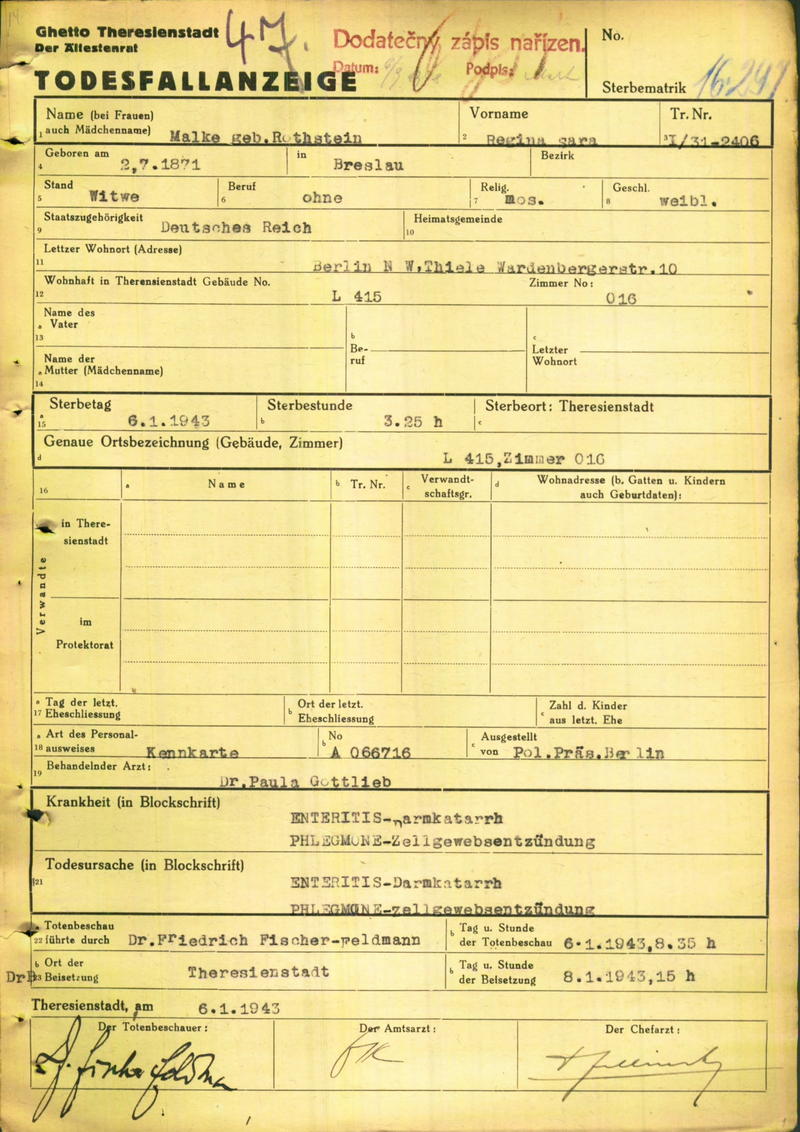 Ghetto Theresienstadt
Der Ältestenrat
47.
Dodatečný zápis nařízen.
Datum: Podpis:
No.
TODESFALLANZEIGE
Sterbematrik
Name (bei Frauen) Vorname Tr. Nr.
1 auch Mädchenname) Malke geb.Rothstein 2 Regina sara 3 I/31-2406
Geboren am in Bezirk
4 2,7.1871 Breslau
Stand Beruf Relig. Geschl.
5 Witwe 6 ohne 7 mos. 8 weibl.
Staatszugehörigkeit Heimatsgemeinde
9 Deutsches Reich 10
Lettzer Wohnort (Adresse)
11 Berlin N W,Thiele Wardenbergerstr.10
Wohnhaft in Therensienstadt Gebäude No. Zimmer No:
12 L 415 016
Name des
a Vater b c
13 Be- Letzter
Name der ruf Wohnort
a Mutter (Mädchenname)
14
Sterbetag Sterbestunde Sterbeort: Theresienstadt
a 15 6.1.1943 b 3.25 h c
Genaue Ortsbezeichnung (Gebäude, Zimmer)
d L 415,Zimmer 016
16 a Name b Tr. Nr. c Verwandt- d Wohnadresse (b. Gatten u. Kindern
schaftsgr. auch Geburtdaten):
Verwandte
in There-
sienstadt
im
Protektorat
a Tag der letzt. b Ort der letzt. c Zahl d. Kinder
17 Eheschliessung Eheschliessung aus letzt. Ehe
a Art des Personal- b No c Ausgestellt
18 ausweises Kennkarte A 066716 von Pol.Präs.Berlin
Behandelnder Arzt:
19 Dr.Paula Gottlieb
Krankheit (in Blockschrift) ENTERITIS-Darmkatarrh
PHLEGMONE-Zellgewebsentzündung
Todesursache (in Blockschrift)
21 ENTERITIS-Darmkatarrh
PHLEGMONE-zellgewebsentzündung
a Totenbeschau b Tag u. Stunde
22 führte durch Dr.Friedrich Fischer-Feldmann der Totenbeschau 6.1.1943,8.35 h
b Ort der b Tag u. Stunde
23 Beisetzung Theresienstadt der Beisetzung 8.1.1943,15 h
Theresienstadt, am 6.1.1943
Der Totenbeschauer: Der Amtsarzt: Der Chefarzt: